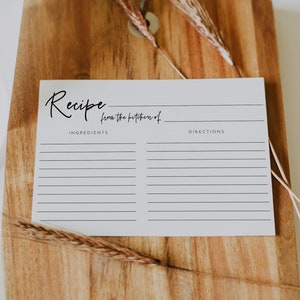 Recipe
from the kitchen of
INGREDIENTS DIRECTIONS